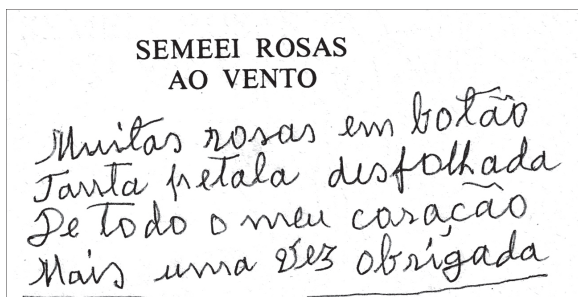 SEMEEI ROSAS
AO VENTO
Muitas rosas em botão
Tanta petala desfolhada
De todo o meu coração
Mais uma vez obrigada